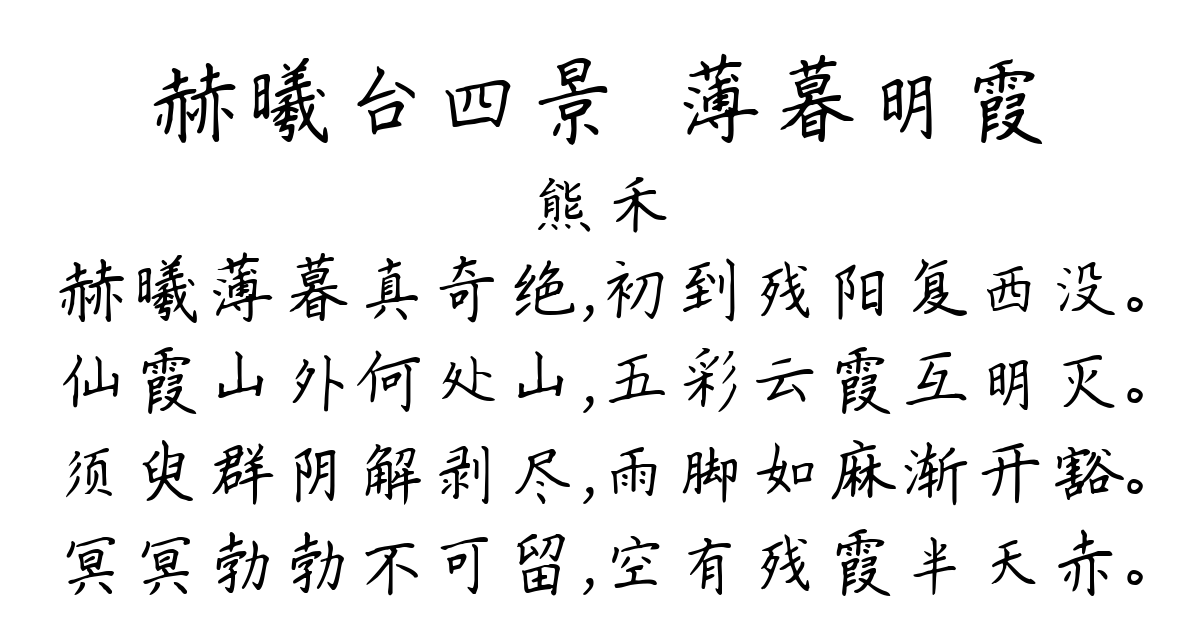 赫曦台四景 薄暮明霞
熊禾
赫曦薄暮真奇绝,初到残阳复西没。
仙霞山外何处山,五彩云霞互明灭。
须臾群阴解剥尽,雨脚如麻渐开豁。
冥冥勃勃不可留,空有残霞半天赤。